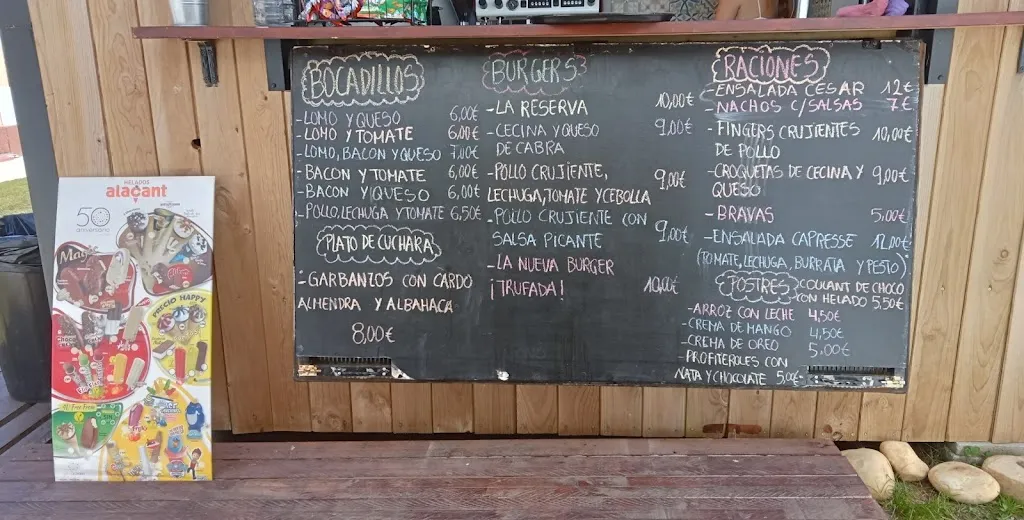 BOCADILLOS
-LOMO Y QUESO 6,00€
-LOMO Y TOMATE 6,00€
-LOMO, BACON Y QUESO 7,00€
-BACON Y TOMATE 6,00€
-BACON Y QUESO 6,00€
-POLLO, LECHUGA Y TOMATE 6,50€
PLATO DE CUCHARA
-GARBANZOS CON CARDO
ALMENDRA Y ALBAHACA
8,00€
BURGERS
-LA RESERVA 10,00€
-CECINA Y QUESO 9,00€
DE CABRA
-POLLO CRUJIENTE, 9,00€
LECHUGA, TOMATE Y CEBOLLA
-POLLO CRUJIENTE CON 9,00€
SALSA PICANTE
-LA NUEVA BURGER
¡TRUFADA! 10,00€
RACIONES
-ENSALADA CESAR 12€
NACHOS C/SALSAS 7€
-FINGERS CRUJIENTES 10,00€
DE POLLO
-CROQUETAS DE CECINA Y 9,00€
QUESO
-BRAVAS 5,00€
-ENSALADA CAPRESSE 12,00€
(TOMATE, LECHUGA, BURRATA Y PESTO)
POSTRES
COULANT DE CHOCO
CON HELADO 5,50€
-ARROZ CON LECHE 4,50€
-CREMA DE MANGO 4,50€
-CREMA DE OREO 5,00€
-PROFITEROLES CON
NATA Y CHOCOLATE 5,00€
HELADOS
alacant
50
aniversario
PRECIO HAPPY